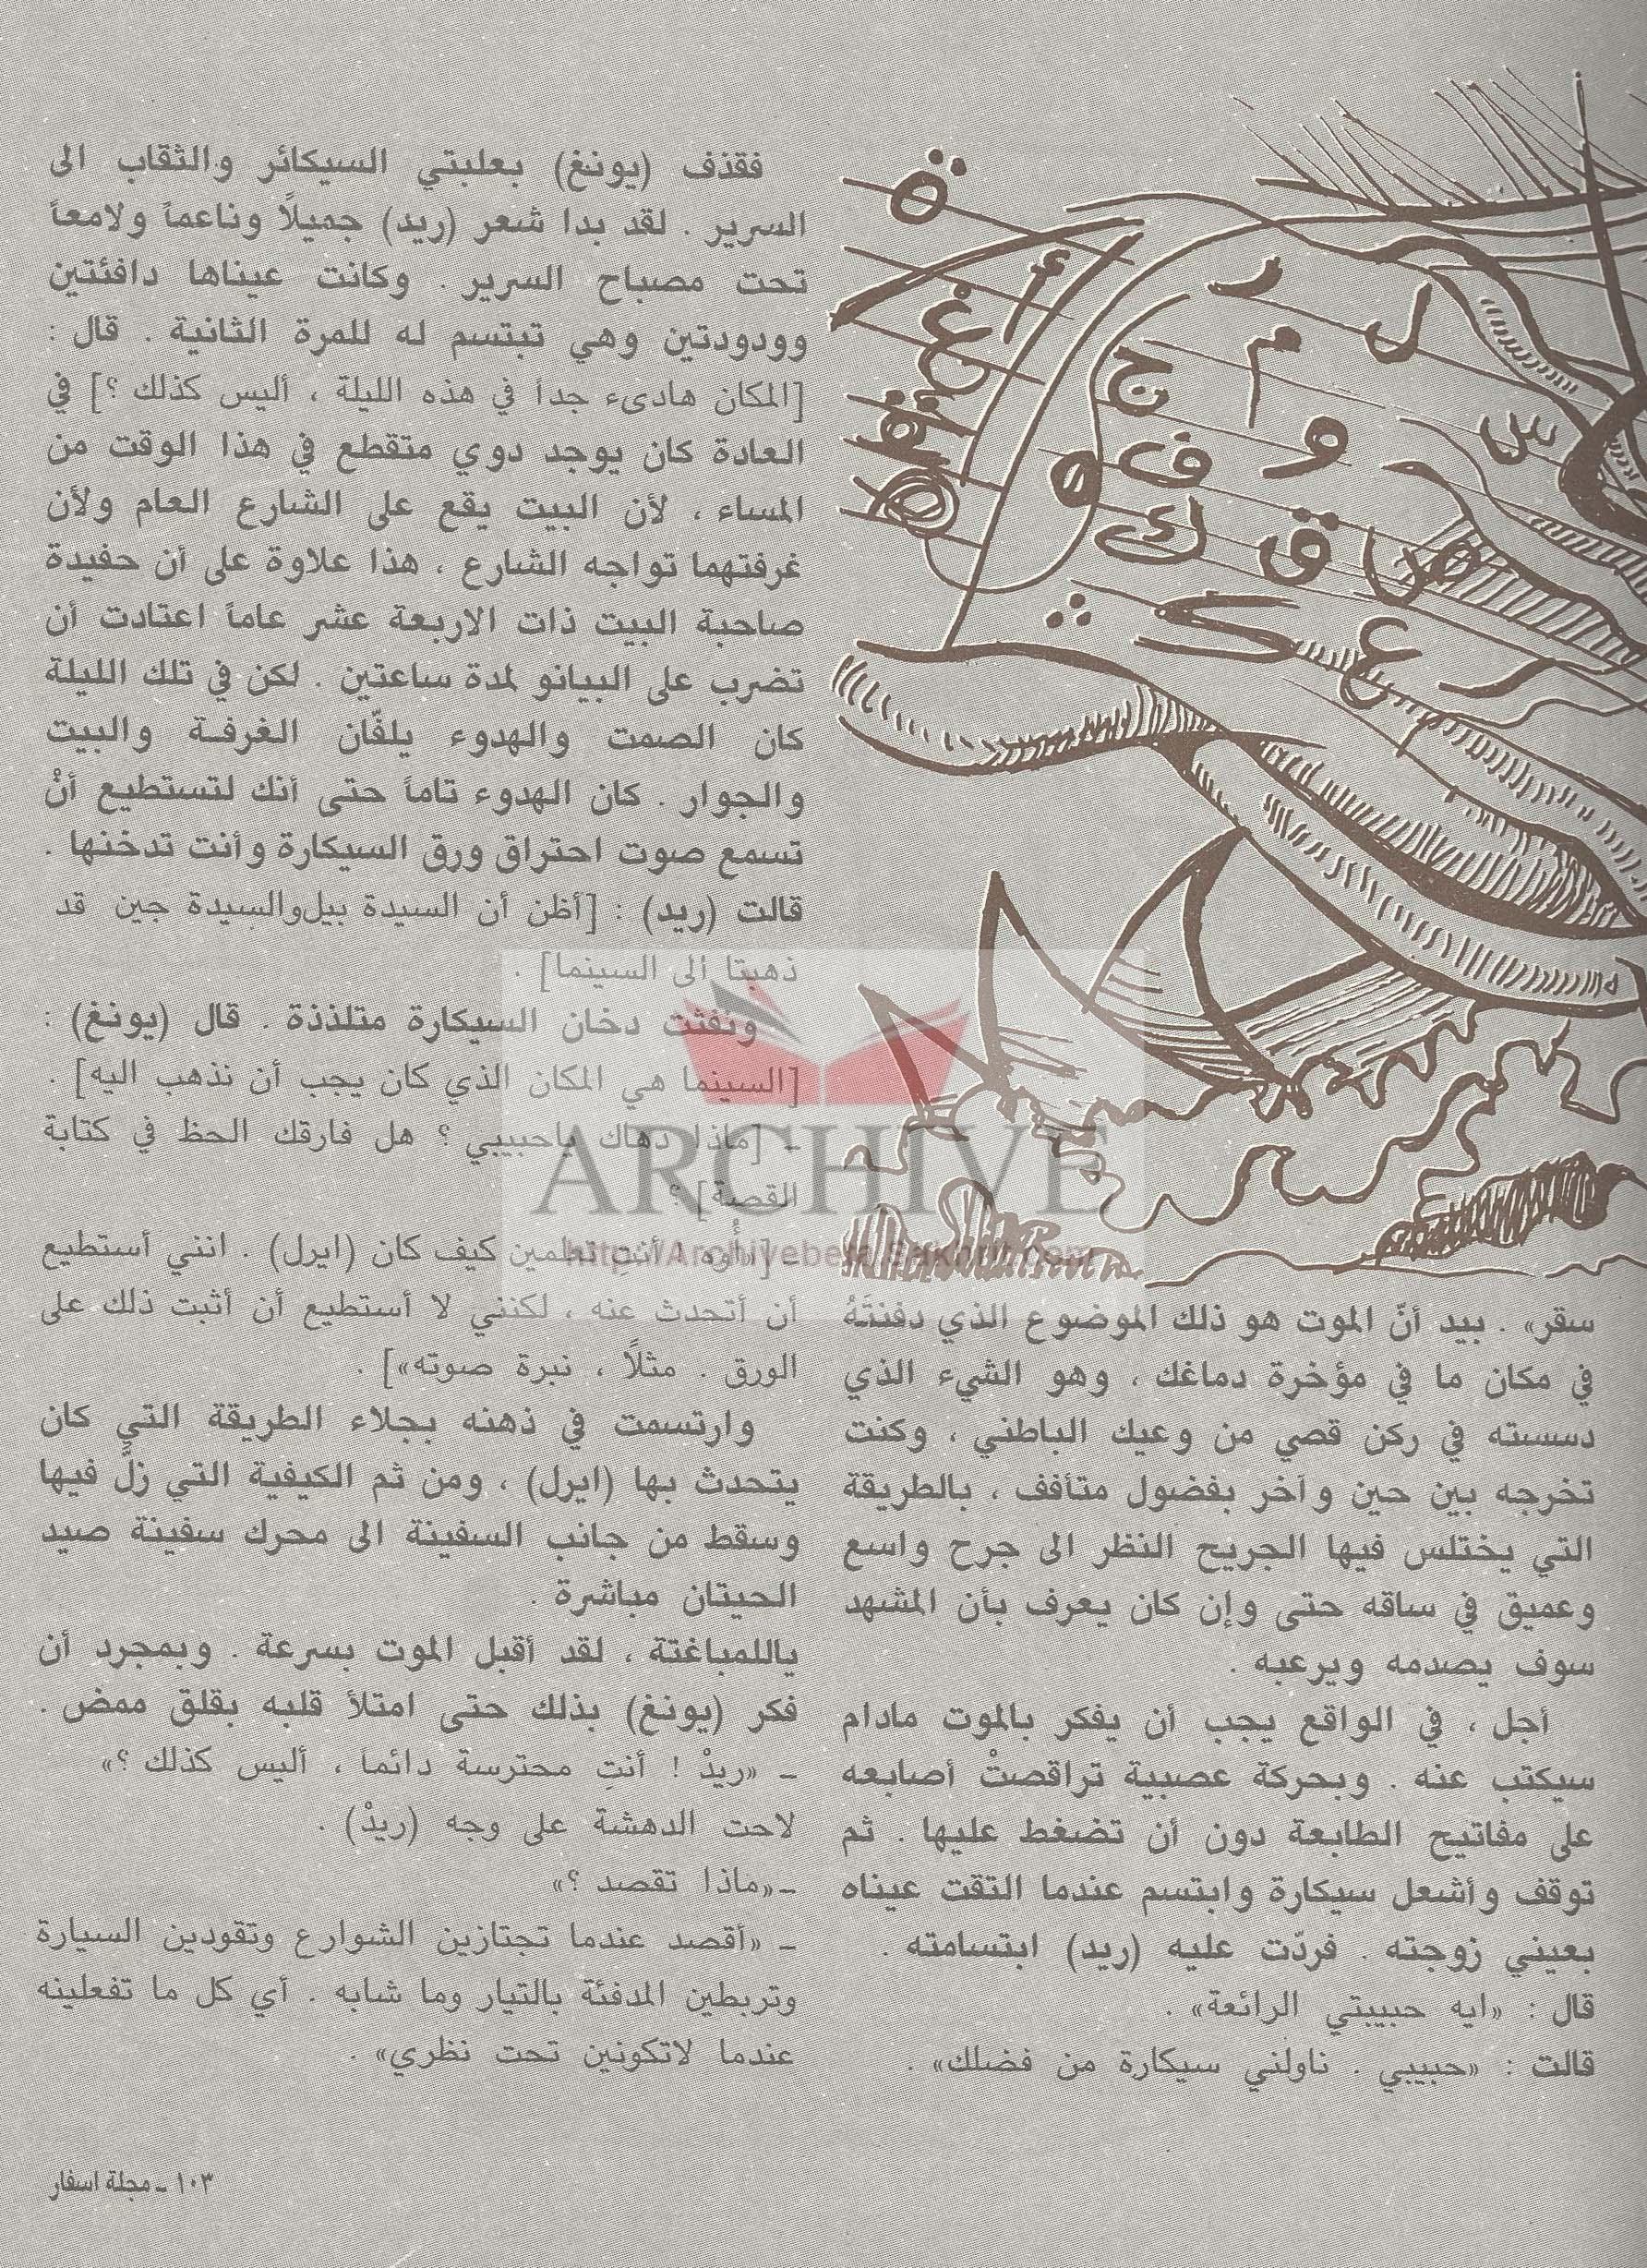 سقر» . بيد أنّ الموت هو ذلك الموضوع الذي دفنتَهُ
في مكان ما في مؤخرة دماغك ، وهو الشيء الذي
دسسته في ركن قصي من وعيك الباطني ، وكنت
تخرجه بين حين وآخر بفضول متأفف ، بالطريقة
التي يختلس فيها الجريح النظر الى جرح واسع
وعميق في ساقه حتى وإن كان يعرف بأن المشهد
سوف يصدمه ويرعبه .
أجل ، في الواقع يجب أن يفكر بالموت مادام
سيكتب عنه . وبحركة عصبية تراقصتْ أصابعه
على مفاتيح الطابعة دون أن تضغط عليها . ثم
توقف وأشعل سيكارة وابتسم عندما التقت عيناه
بعيني زوجته . فردّت عليه (ريد) ابتسامته .
قال : «ايه حبيبتي الرائعة» .
قالت : «حبيبي . ناولني سيكارة من فضلك» .
فقذف (يونغ) بعلبتي السيكائر والثقاب الى
السرير . لقد بدا شعر (ريد) جميلاً وناعماً ولامعاً
تحت مصباح السرير . وكانت عيناها دافئتين
وودودتين وهي تبتسم له للمرة الثانية . قال :
[المكان هادىء جداً في هذه الليلة ، أليس كذلك ؟] في
العادة كان يوجد دوي متقطع في هذا الوقت من
المساء ، لأن البيت يقع على الشارع العام ولأن
غرفتهما تواجه الشارع ، هذا علاوة على أن حفيدة
صاحبة البيت ذات الاربعة عشر عاماً اعتادت أن
تضرب على البيانو لمدة ساعتين . لكن في تلك الليلة
كان الصمت والهدوء يلفّان الغرفة والبيت
والجوار . كان الهدوء تاماً حتى أنك لتستطيع أنْ
تسمع صوت احتراق ورق السيكارة وأنت تدخنها .
قالت (ريد) : [أظن أن السيدة بيل والسيدة جين قد
ذهبتا الى السينما] .
ونفثت دخان السيكارة متلذذة . قال (يونغ) :
[السينما هي المكان الذي كان يجب أن نذهب اليه] .
ـ [ماذا دهاك ياحبيبي ؟ هل فارقك الحظ في كتابة
القصة] ؟
ـ [«أوه ! أنتِ تعلمين كيف كان (ايرل) . انني أستطيع
أن أتحدث عنه ، لكنني لا أستطيع أن أثبت ذلك على
الورق . مثلاً ، نبرة صوته»] .
وارتسمت في ذهنه بجلاء الطريقة التي كان
يتحدث بها (ايرل) ، ومن ثم الكيفية التي زلَّ فيها
وسقط من جانب السفينة الى محرك سفينة صيد
الحيتان مباشرة .
ياللمباغتة ، لقد أقبل الموت بسرعة . وبمجرد أن
فكر (يونغ) بذلك حتى امتلأ قلبه بقلق ممض .
ـ «ريدْ ! أنتِ محترسة دائماً ، أليس كذلك ؟»
لاحت الدهشة على وجه (ريدْ) .
ـ «ماذا تقصد ؟»
ـ «أقصد عندما تجتازين الشوارع وتقودين السيارة
وتربطين المدفئة بالتيار وما شابه . أي كل ما تفعلينه
عندما لاتكونين تحت نظري» .
١٠٣ ـ مجلة اسفار
ARCHIVE
http://Archivebeta.Sakhrit.com